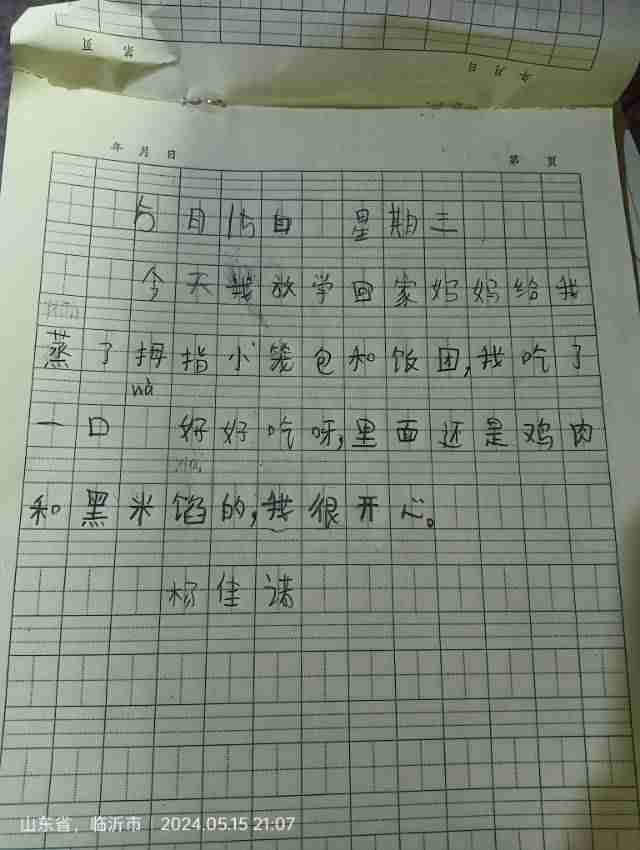 第 页
年 月 日
年 月 日 第 页
5月15日 星期三
今天我放学回家妈妈给我
蒸了拇指小笼包和饭团,我吃了
nà
一口 好好吃呀,里面还是鸡肉
和黑米馅的,我很开心。
杨佳诸
山东省,临沂市 2024.05.15 21:07